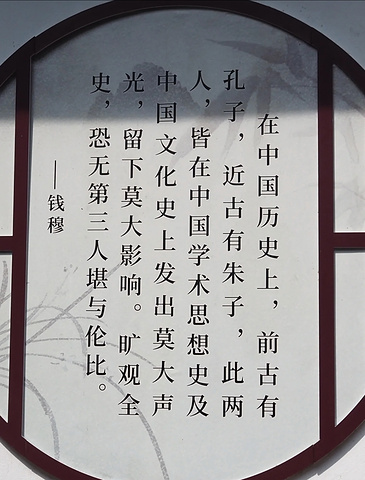 在中国历史上，前古有
孔子，近古有朱子，此两
人，皆在中国学术思想史及
中国文化史上发出莫大声
光，留下莫大影响。旷观全
史，恐无第三人堪与伦比。
——钱穆